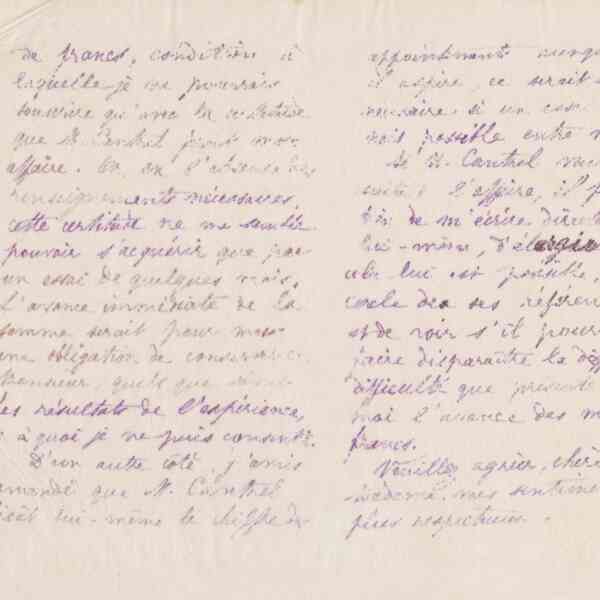 de francs, condition à
laquelle je ne pourrais
souscrire qu'avec la certitude
que M. Canthel ferait mon
affaire. Or, en l'absence des
renseignements nécessaires,
cette certitude ne me semble
pouvoir s'acquérir que par
un essai de quelques mois.
L'avance immédiate de la
somme serait pour moi
une obligation de conserver
quels que
les résultats de l'expérience,
à quoi je ne puis consentir.
D'un autre côté, j'avais
demandé que M. Canthel
lui-même le chiffre des
appointements
il aspire, ce serait
si un
mois possible entre
Si M. Canthel
suite à l'affaire, il
bien de m'écrire
lui-même, d'élargir
cela lui est possible,
cercle de ses
et de voir s'il
faire disparaître la
difficulté que présente
moi l'avance des
francs.
Veuillez agréer, chère
madame, mes
plus respectueux.